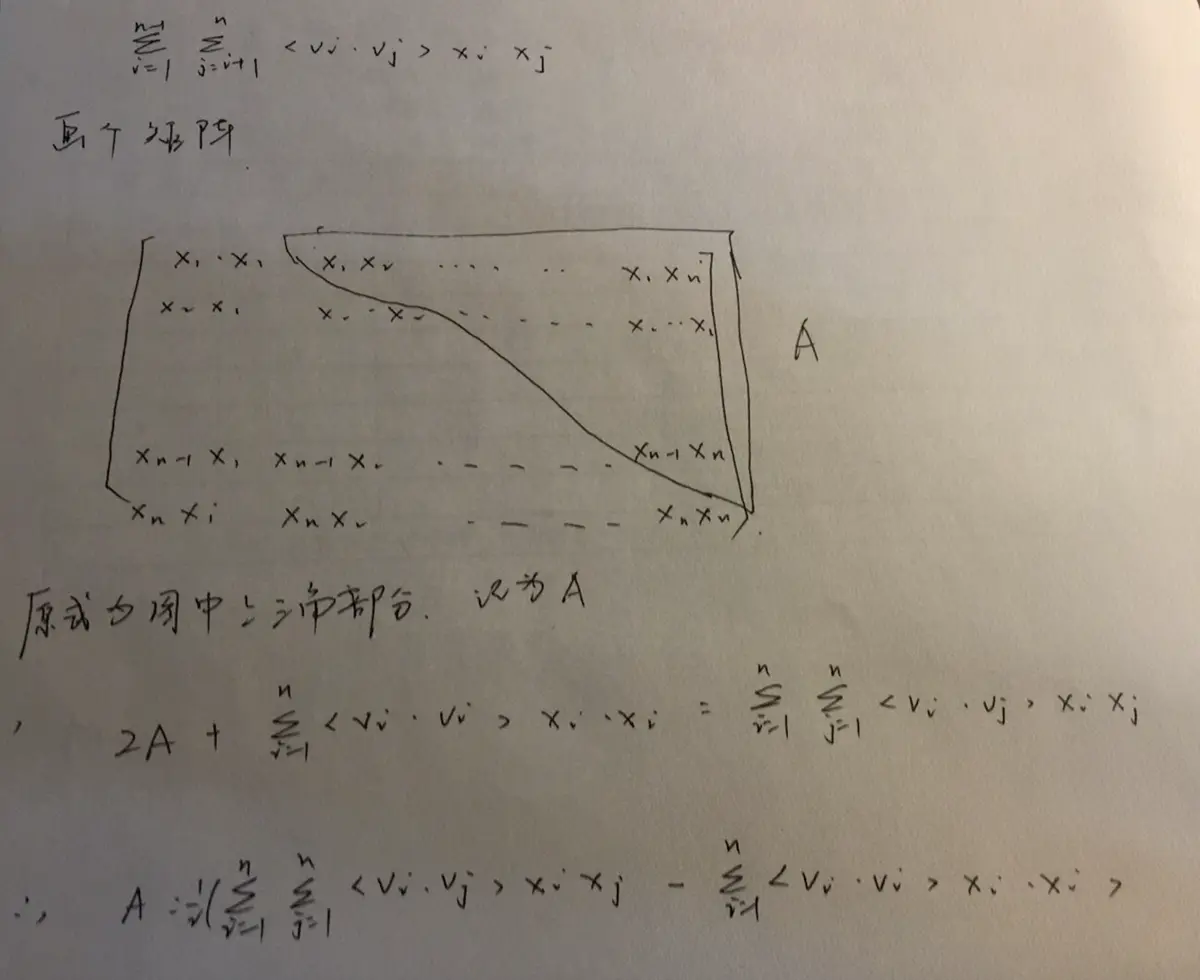 n-1 n
∑ ∑ < vi · vj > xi xj
i=1 j=i+1
画个矩阵
x1 · x1 x1 x2 ···· ·· x1 xn
x2 x1 x2 · x2 - - - - - x2 ·· x
xn-1 x1 xn-1 x2 · - - - - · xn-1 xn
xn xi xn x2 · - - - xn xn
A
原式为图中上三角部分. 记为A
2A + ∑ⁿi=1 < vi · vi > xi · xi = ∑ⁿi=1 ∑ⁿj=1 < vi · vj > xi xj
∴ A = ½( ∑ⁿi=1 ∑ⁿj=1 < vi · vj > xi xj - ∑ⁿi=1 < vi · vi > xi · xi >